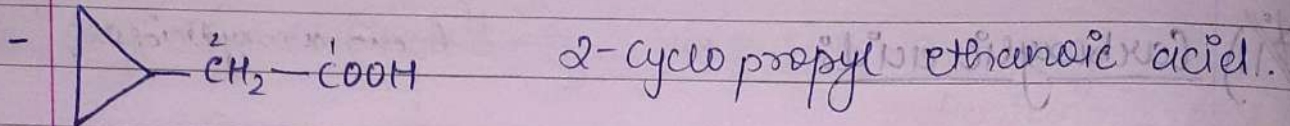 - CH₂ — COOH 2-cyclo propyl ethanoic acid.
2 1